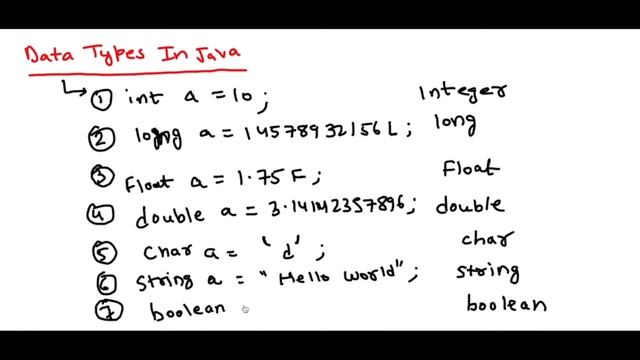 Data Types In Java
① int a = 10; Integer
② long a = 14578932156L; long
③ Float a = 1.75F; Float
④ double a = 3.14142357896; double
⑤ char a = 'd'; char
⑥ string a = "Hello world"; string
⑦ boolean boolean